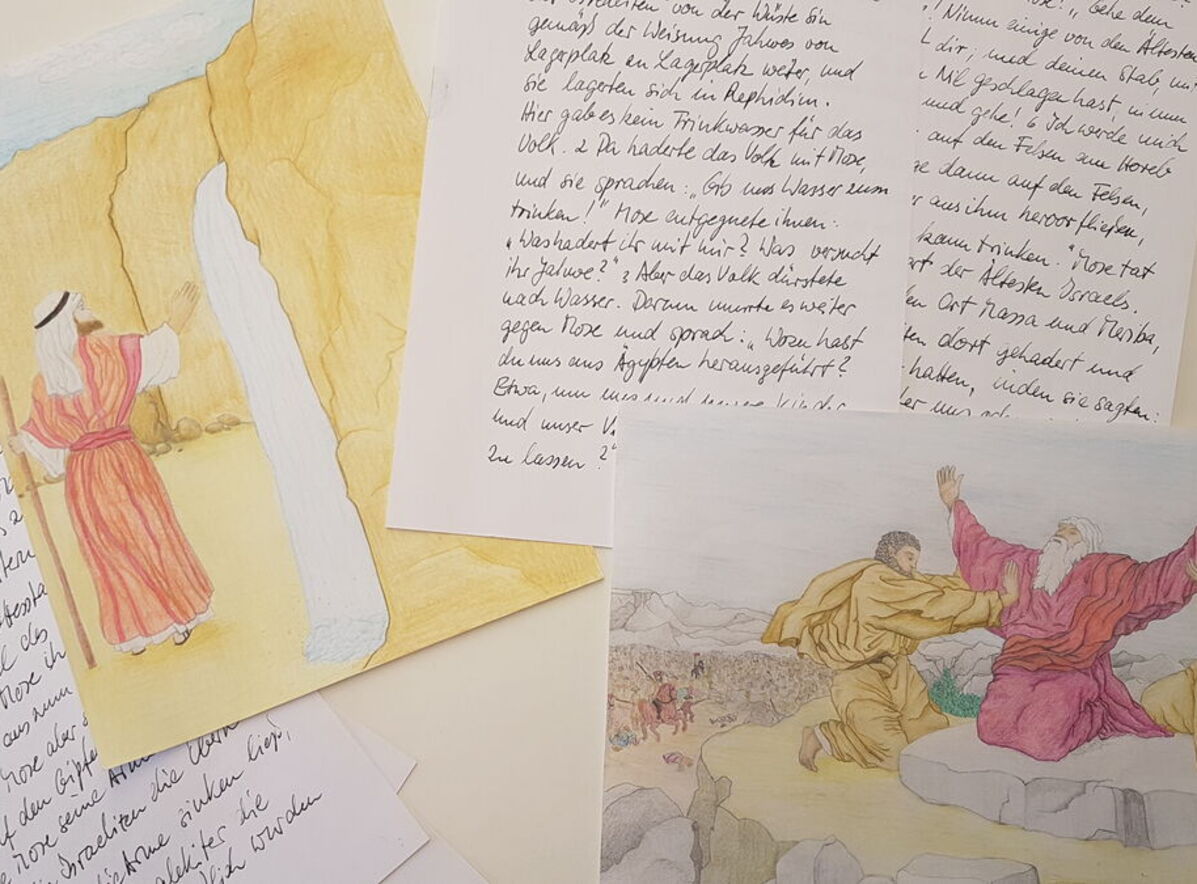 von der Wüste Sin
gemäß der Weisung Jahwes von
Lagerplatz zu Lagerplatz weiter, und
sie lagerten sich in Rephidim.
Hier gab es kein Trinkwasser für das
Volk. 2 Da haderte das Volk mit Mose,
und sie sprachen: „Gib uns Wasser zum
trinken!" Mose entgegnete ihnen:
„Was hadert ihr mit mir? Was versucht
ihr Jahwe?" 3 Aber das Volk dürstete
nach Wasser. Darum murrte es weiter
gegen Mose und sprach: „Wozu hast
du uns aus Ägypten herausgeführt?
Etwa, um uns und unsere Kinder
und unser V
zu lassen?"
„Gehe dem
! Nimm einige von den Ältesten
dir; und deinen Stab, mit
Nil geschlagen hast, nimm
und gehe! 6 Ich werde mich
auf den Felsen am Horeb
dann auf den Felsen,
aus ihm hervorfließen,
kann trinken." Mose tat
der Ältesten Israels.
Ort Massa und Meriba,
dort gehadert und
hatten, indem sie sagten:
uns
des
Mose ih
aus zum
Mose aber
den Gipfe
Mose seine Arm
Israeliten die Oberh
Arme sinken ließ,
die
wurden